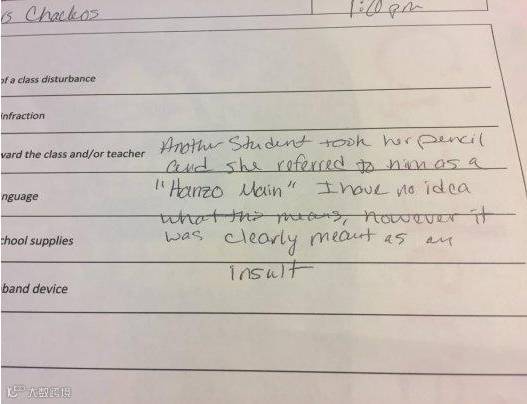 rs Chackos
1:00 pm
of a class disturbance
infraction
ward the class and/or teacher
Another Student took her pencil
and she referred to him as a
"Hanzo Main" I have no idea
what this means, however it
was clearly meant as an
insult
nguage
chool supplies
band device
大数跨境